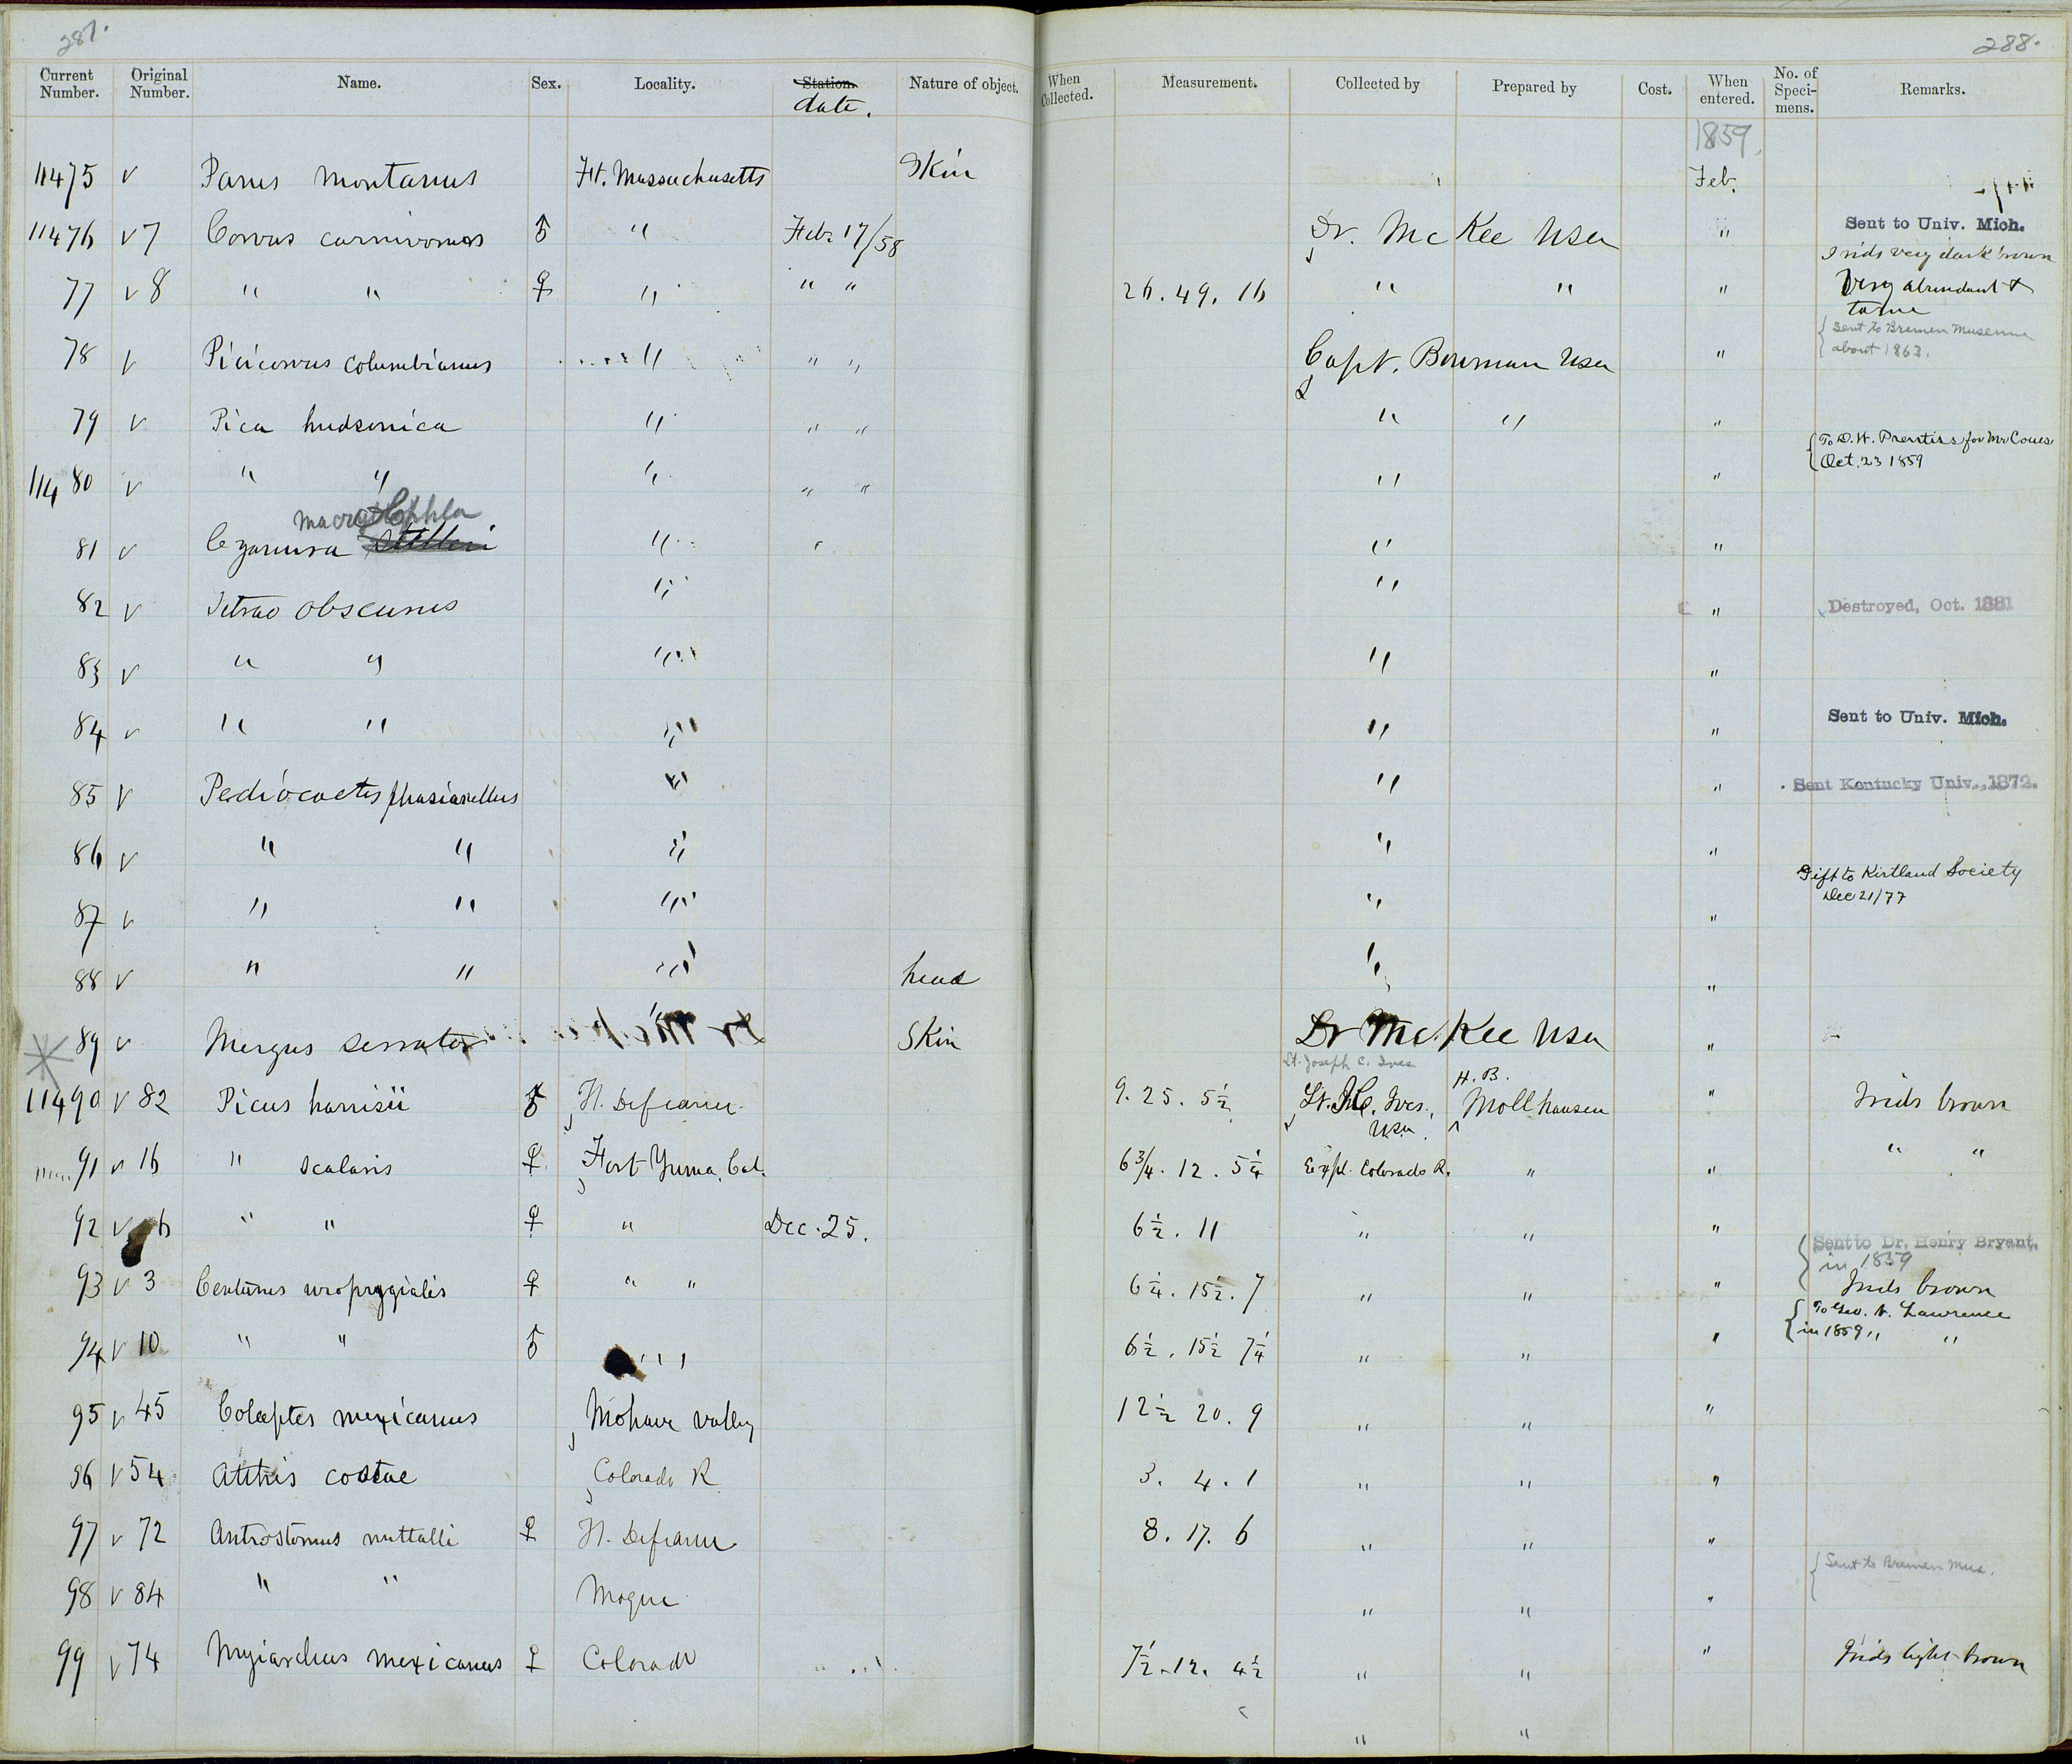 287.
288.
Current Number. Original Number. Name. Sex. Locality. Station. date. Nature of object. When Collected. Measurement. Collected by Prepared by Cost. When entered. No. of Specimens. Remarks.
1859.
11475 v Parus montanus Ft. Massachusetts Skin Feb.
11476 v 7 Corvus carnivorous ♂ " Feb. 17/58 Dr. McKee USA " Sent to Univ. Mich.
Irids very dark brown
77 v 8 " " ♀ " " " 26. 49. 16 " " " Very abundant &
tame
78 v Picicorvus columbianus " " " Capt. Bowman USA " Sent to Bremen Museum
about 1863.
79 v Pica hudsonica " " " " " "
To D. W. Prentiss for Mr Coues
Oct. 23 1859
11480 v " " " " " " "
macrolopha
81 v Cyanura Stelleri " " "
82 v Tetrao obscurus " " " Destroyed, Oct. 1881
83 v " " " " "
84 v " " " " " Sent to Univ. Mich.
85 v Pediocaetes phasianellus " " " Sent Kentucky Univ., 1872.
86 v " " " " "
Gift to Kirtland Society
Dec 21/77
87 v " " " " "
88 v " " " head " "
89 v Mergus serrator " Skin Dr McKee USA "
Lt. Joseph C. Ives
11490 v 82 Picus harrisii ♂ Ft. Defiance 9. 25. 5½ Lt. J.C. Ives, USA H. B. Mollhausen " Irids brown
91 v 16 " scalaris ♀ Fort Yuma, Cal. 6¾. 12. 5¼ Expl. Colorado R. " " " "
92 v 6 " " ♀ " Dec. 25. 6½. 11 " " "
Sent to Dr. Henry Bryant.
in 1859
93 v 3 Centurus uropygialis ♀ " " 6¼. 15½. 7 " " " Irids brown
To Geo. N. Lawrence
94 v 10 " " ♂ " " 6½. 15½ 7¼ " " " in 1859 " "
95 v 45 Colaptes mexicanus Mohave valley 12½ 20. 9 " " "
96 v 54 Atthis costae Colorado R 3. 4. 1 " " "
97 v 72 Antrostomus nuttalli ♀ Ft. Defiance 8. 17. 6 " " "
98 v 84 " " Moque " " " Sent to Bremen Mus.
99 v 74 Myiarchus mexicanus ♀ Colorado 7½. 12. 4½ " " " Irids light brown
" "